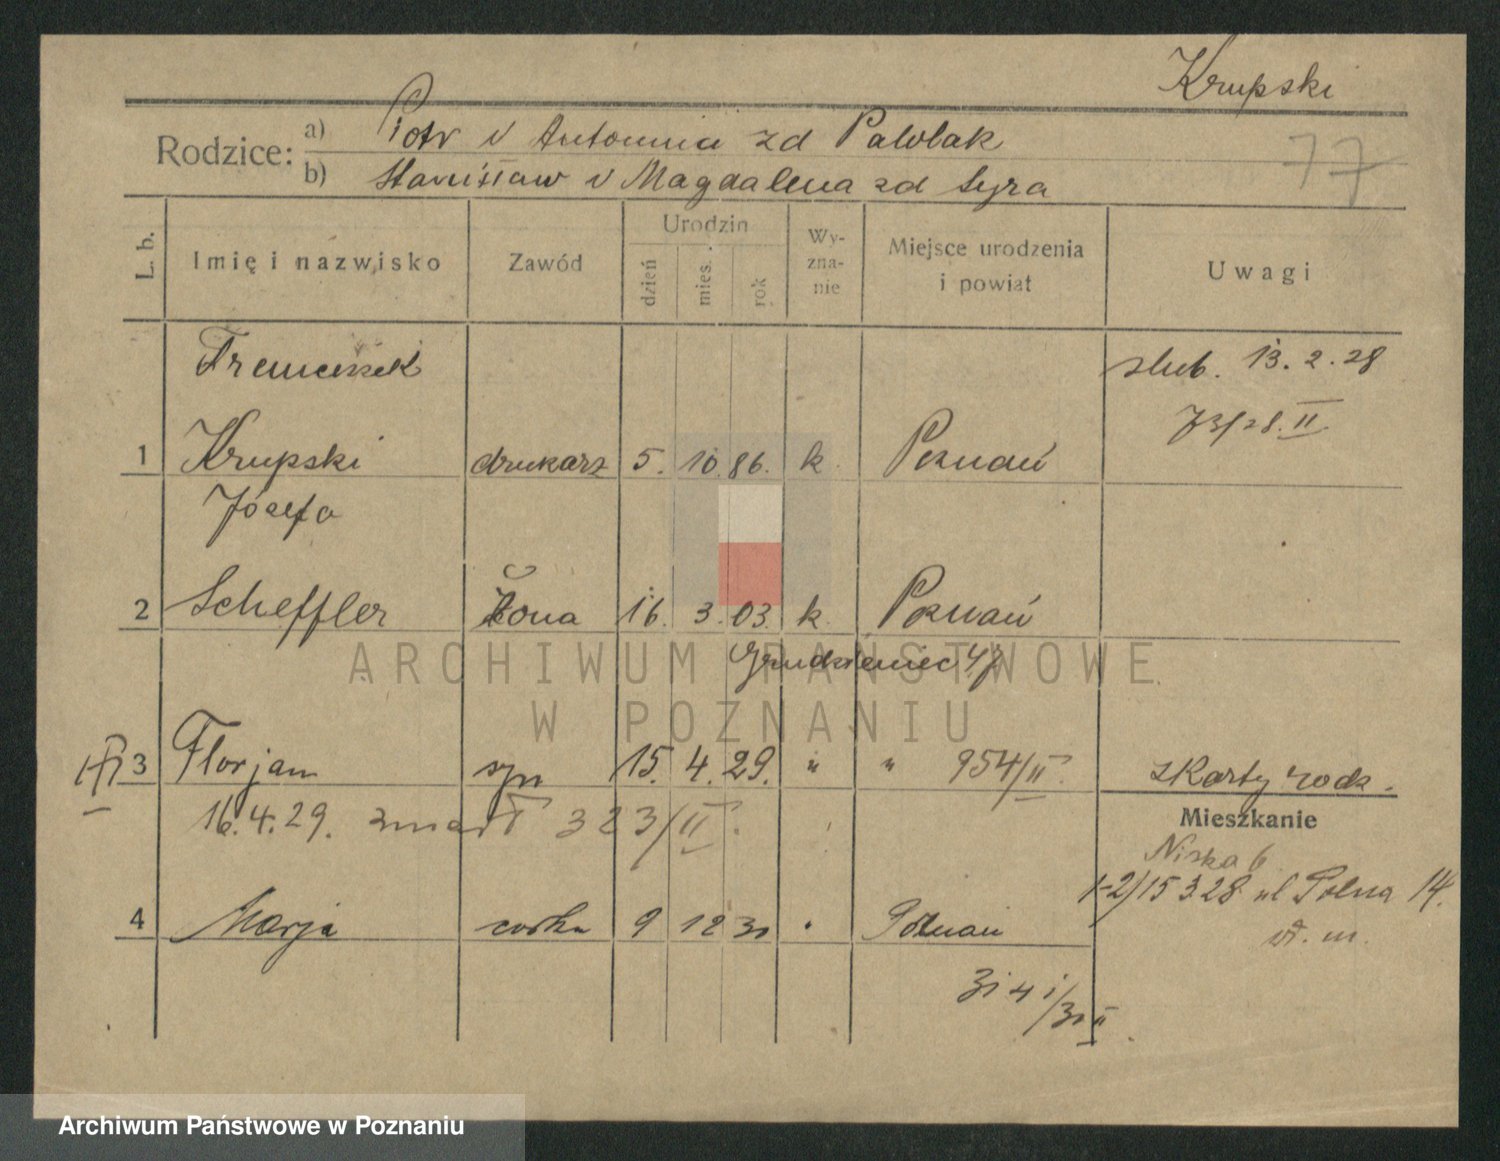 Krupski
77
Rodzice: a) Piotr i Antonina zd Pawlak
b) Stanisław i Magdalena zd Syra
L. b. Imię i nazwisko Zawód Urodzin dzień mies. rok Wy-zna-nie Miejsce urodzenia i powiat Uwagi
Franciszek ślub. 13.2.28
73/28.II
1 Krupski drukarz 5. 10. 86. k. Poznań
Józefa
2 Scheffler Żona 16. 3. 03. k. Poznań
Grudzieniec 47
3 Florjan syn 15. 4. 29. " " 954/II. z Karty rodz.
16.4.29. zmarł 323/II.
Mieszkanie
Niska 6
15 3 28 ul Polna 14.
4 Marja córka 9 12 30 Poznań
wł. m.
ARCHIWUM PAŃSTWOWE
W POZNANIU
Archiwum Państwowe w Poznaniu